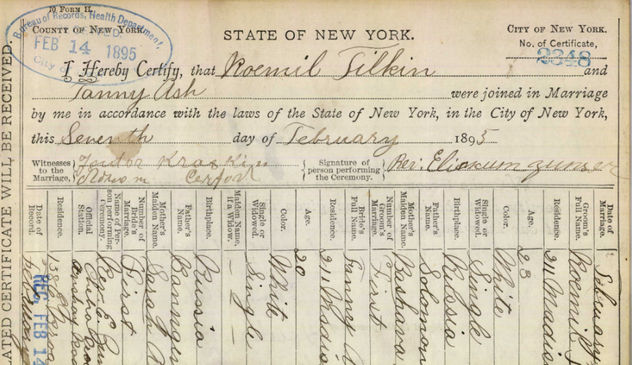 10 FORM H.
COUNTY OF NEW YORK.
STATE OF NEW YORK.
CITY OF NEW YORK.
No. of Certificate,
2348
Bureau of Records, Health Department,
FEB 14 1895
City
I Hereby Certify, that Roemil Filkin and
Fanny Ash were joined in Marriage
by me in accordance with the laws of the State of New York, in the City of New York,
this Seventh day of February 1895
Witnesses to the Marriage,
Signature of person performing the Ceremony.
Rev. Eliakum Zunser
LATED CERTIFICATE WILL BE RECEIVED.
Date of Marriage. February
Groom's Full Name. Roemil
Residence. 211 Madis
Age. 23
Color. White
Single or Widowed. Single
Birthplace. Russia
Father's Name. Solomon
Mother's Maiden Name.
Number of Groom's Marriage. First
Bride's Full Name. Fanny
Residence. 211 Madis
Age. 20
Color. White
Single or Widowed. Single
Maiden Name, if a Widow. —
Birthplace. Russia
Father's Name.
Mother's Maiden Name. Sarah
Number of Bride's Marriage. First
Name of Person performing Ceremony. Rev. E.
Official Station.
Residence.
Date of Record. REC. FEB 14